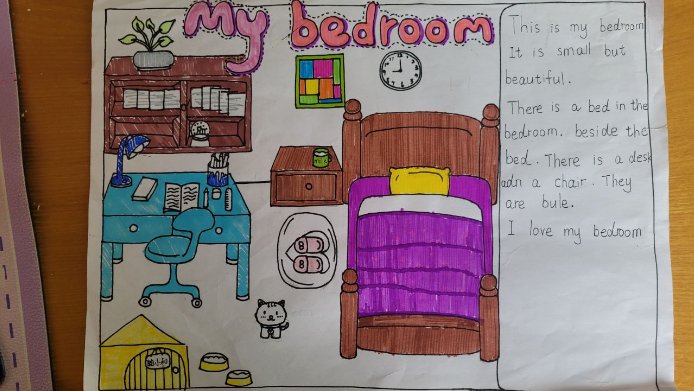 My bedroom
This is my bedroom
It is small but
beautiful.
There is a bed in the
bedroom. beside the
bed. There is a desk
adn a chair. They
are bule.
I love my bedroom